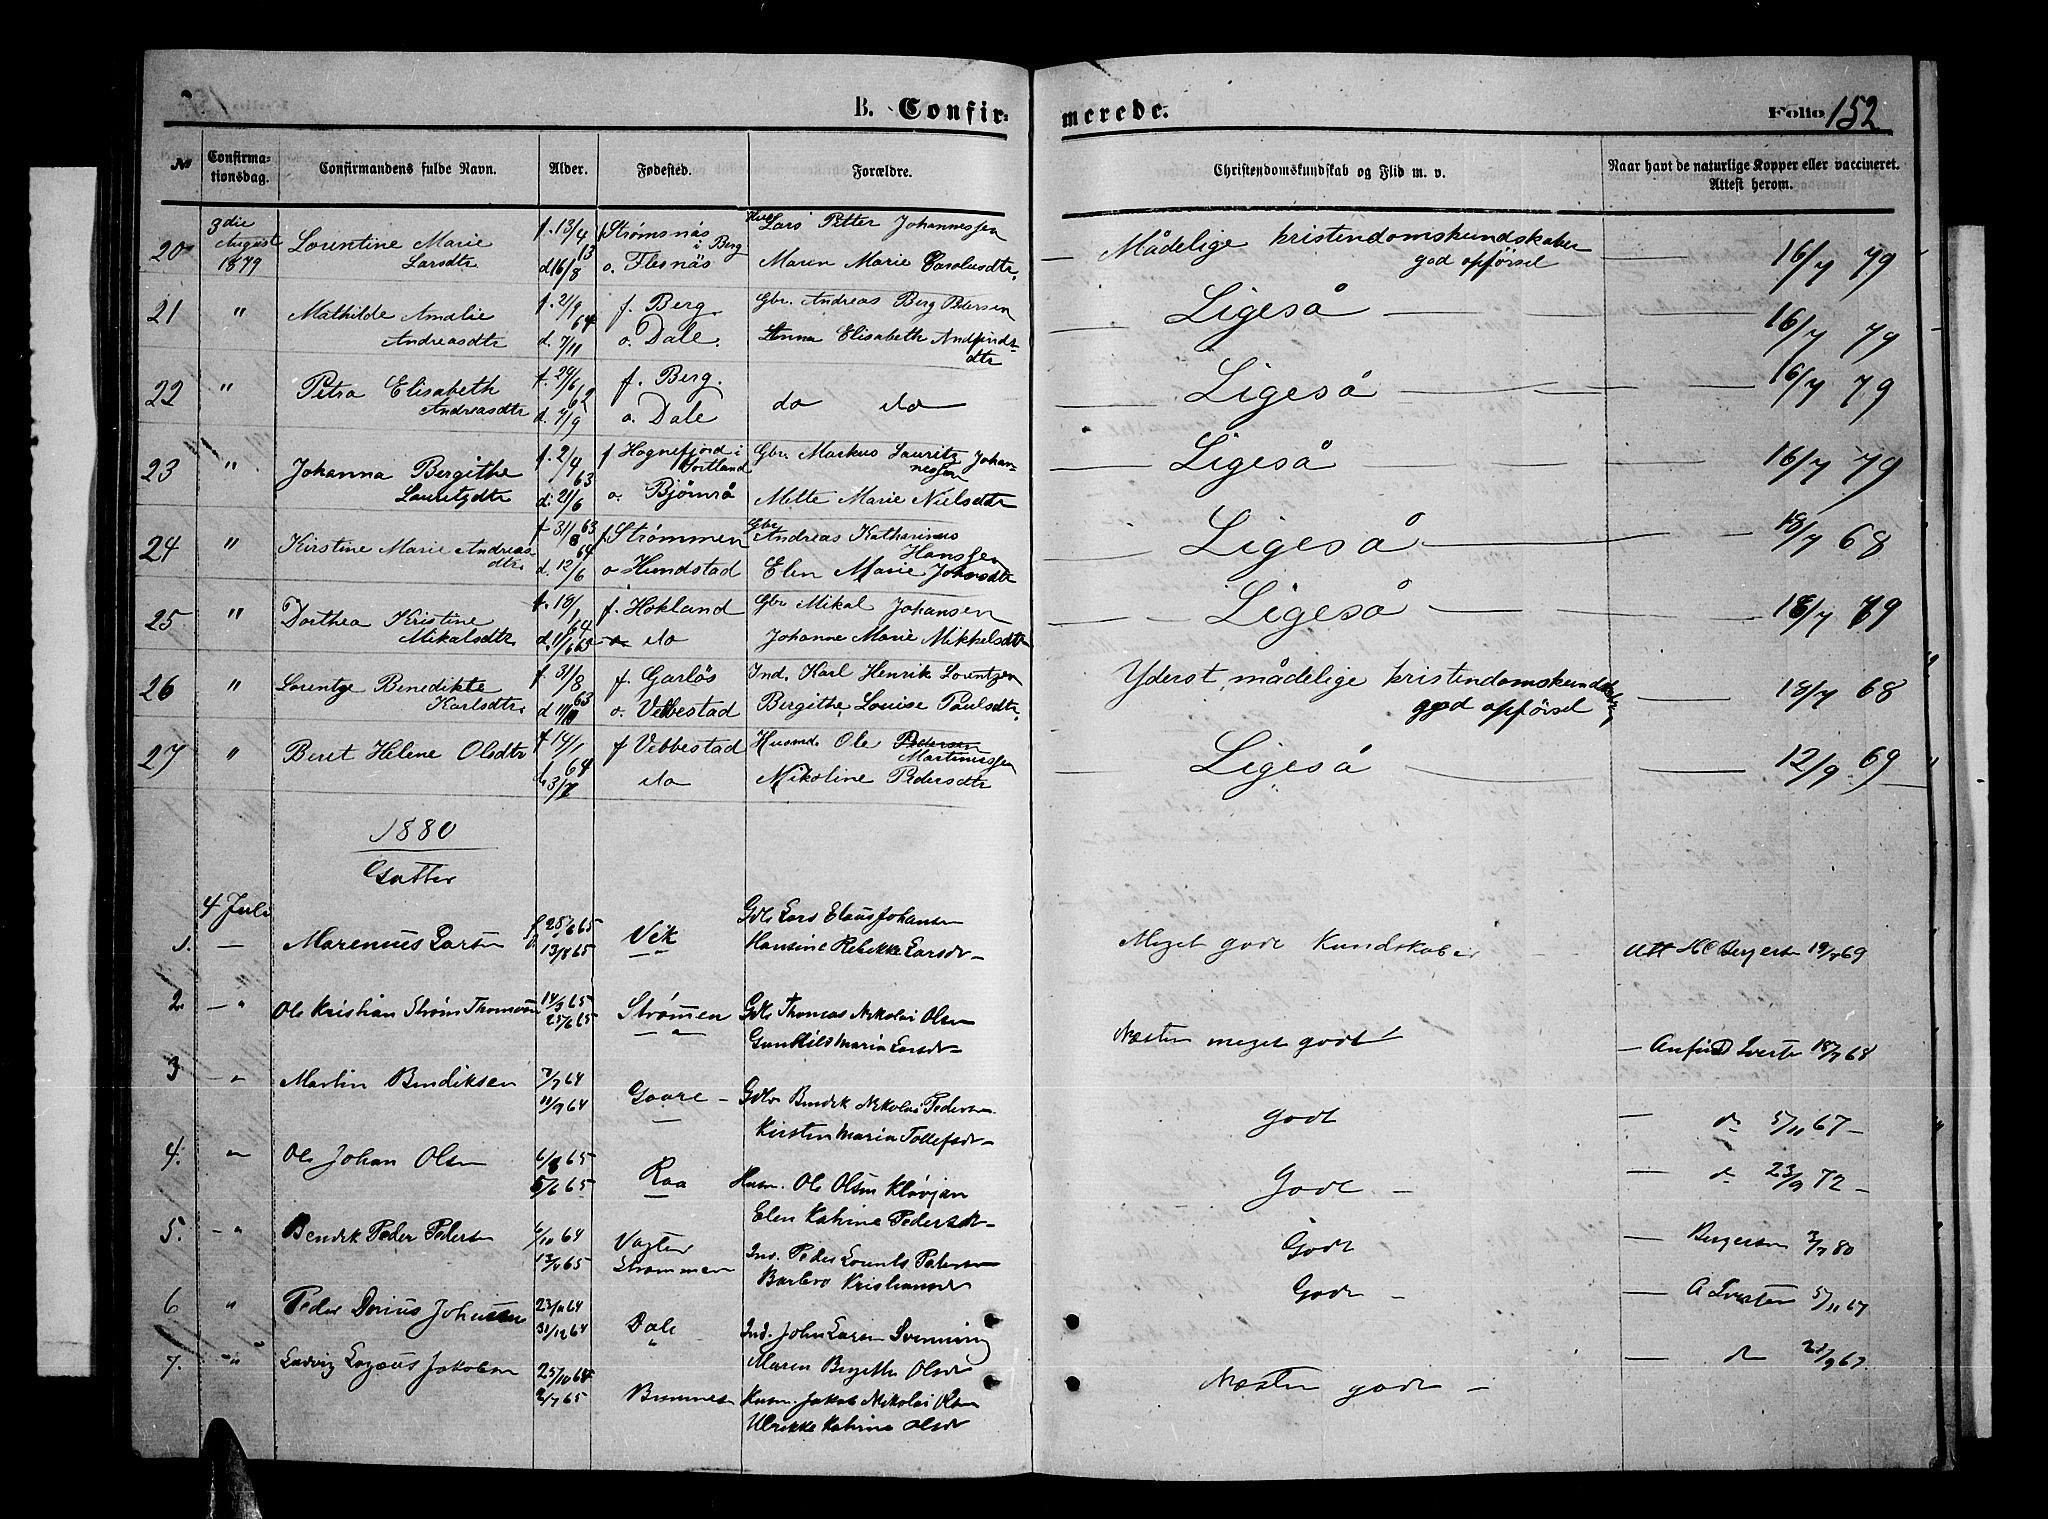 B. Confir-
merede.
Folio 152
№ Confirma-tionsdag. Confirmandens fulde Navn. Alder. Fødested. Forældre. Christendomskundskab og Flid m. v. Naar havt de naturlige Kopper eller vaccineret. Attest herom.
3die August 1879
20 Lorentine Marie Larsdtr f. 13/4 d 16/8 f Strømsnäs i Berg o. Flesnäs Lars Petter Johannessen Maren Marie Carolusdtr. Mådelige kristendomskundskaber god opførsel 16/7 79
21 " Mathilde Amalie Andreasdtr f. 21/9 64 d. 7/11 f. Berg o. Dale. Gbr. Andreas Berg Petersen Anna Elisabeth Andfindsdtr Ligeså 16/7 79
22 " Petra Elisabeth Andreasdtr f. 29/6 62 d. 7/9 f. Berg. o. Dale do do Ligeså 16/7 79
23 " Johanna Bergithe Lauritzdtr f. 2/4 63 d. 21/6 f Hognefjord i Sortland o. Bjørnrå Gbr. Markus Lauritz Johannessen Mette Marie Nielsdtr Ligeså 16/7 79
24 " Kirstine Marie Andreasdtr. f. 31/8 63 d. 12/6 64 f Strømmen o Hundstad Gbr Andreas Katharinus Hanssen Elen Marie Johnsdtr Ligeså 18/7 68
25 " Dorthea Kristine Mikalsdtr f. 18/1 64 d. 1/6 65 f. Hokland do Gbr Mikal Johansen Johanne Marie Mikkelsdtr Ligeså 18/7 69
26 " Lorentze Benedikte Karlsdtr. f. 31/8 63 d f. Garløs o. Vebbestad Ind. Karl Henrik Lorentzen Bergithe Louise Paulsdtr. Yderst mådelige kristendomskundskab god opførsel 18/7 68
27 " Beret Helene Olsdtr f 14/1 64 3/7 f Vebbestad do Husmd. Ole Pedersen Martinussen Nikoline Pedersdtr Ligeså 12/9 69
1880
Gutter
4 Juli
1. — Marenus Larsen f 28/6 65 d 13/8 65 Vik Gdbr Lars Elaus Johansen Hansine Rebekke Larsdr Meget gode Kundskaber Att HC Bergersen 19/7 69
2 — " Ole Kristian Strøm Thomassen 25/6 65 Strømmen Gdbr Thomas Nikolai Olsen Gunhild Maria Larsdr Næsten meget godt Anfind Iversen 18/7 68
3 — " Martin Bendiksen 7/7 64 11/9 64 Gaare Gdbr Bendik Nikolai Pedersen Kirsten Maria Tollefsdr godt do 5/11 67
4. " Ole Johan Olsen 6/8 65 5/6 65 Raa Husm. Ole Olsen Kløvjan Elen Katrine Pedersdr Godt do 23/9 72
5. — " Bendik Peder Pedersen 6/10 64 13/4 65 Strømmen Ind. Peder Lorents Pedersen Barbro Kristiansdr Godt Bergersen 3/7 80
6 " Peder Dorius Johnsen 23/11 64 31/12 64 Dale " Ind. John Larsen Svenning Maren Bergithe Olsdr Godt A Iversen 5/11 67
7. — " Ludvig Lazæus Jakobsen 25/10 64 2/7 65 Bremnes Husm. Jakob Nikolai Olsen Ulrikke Katrine Olsdr Næsten godt do 21/9 67.